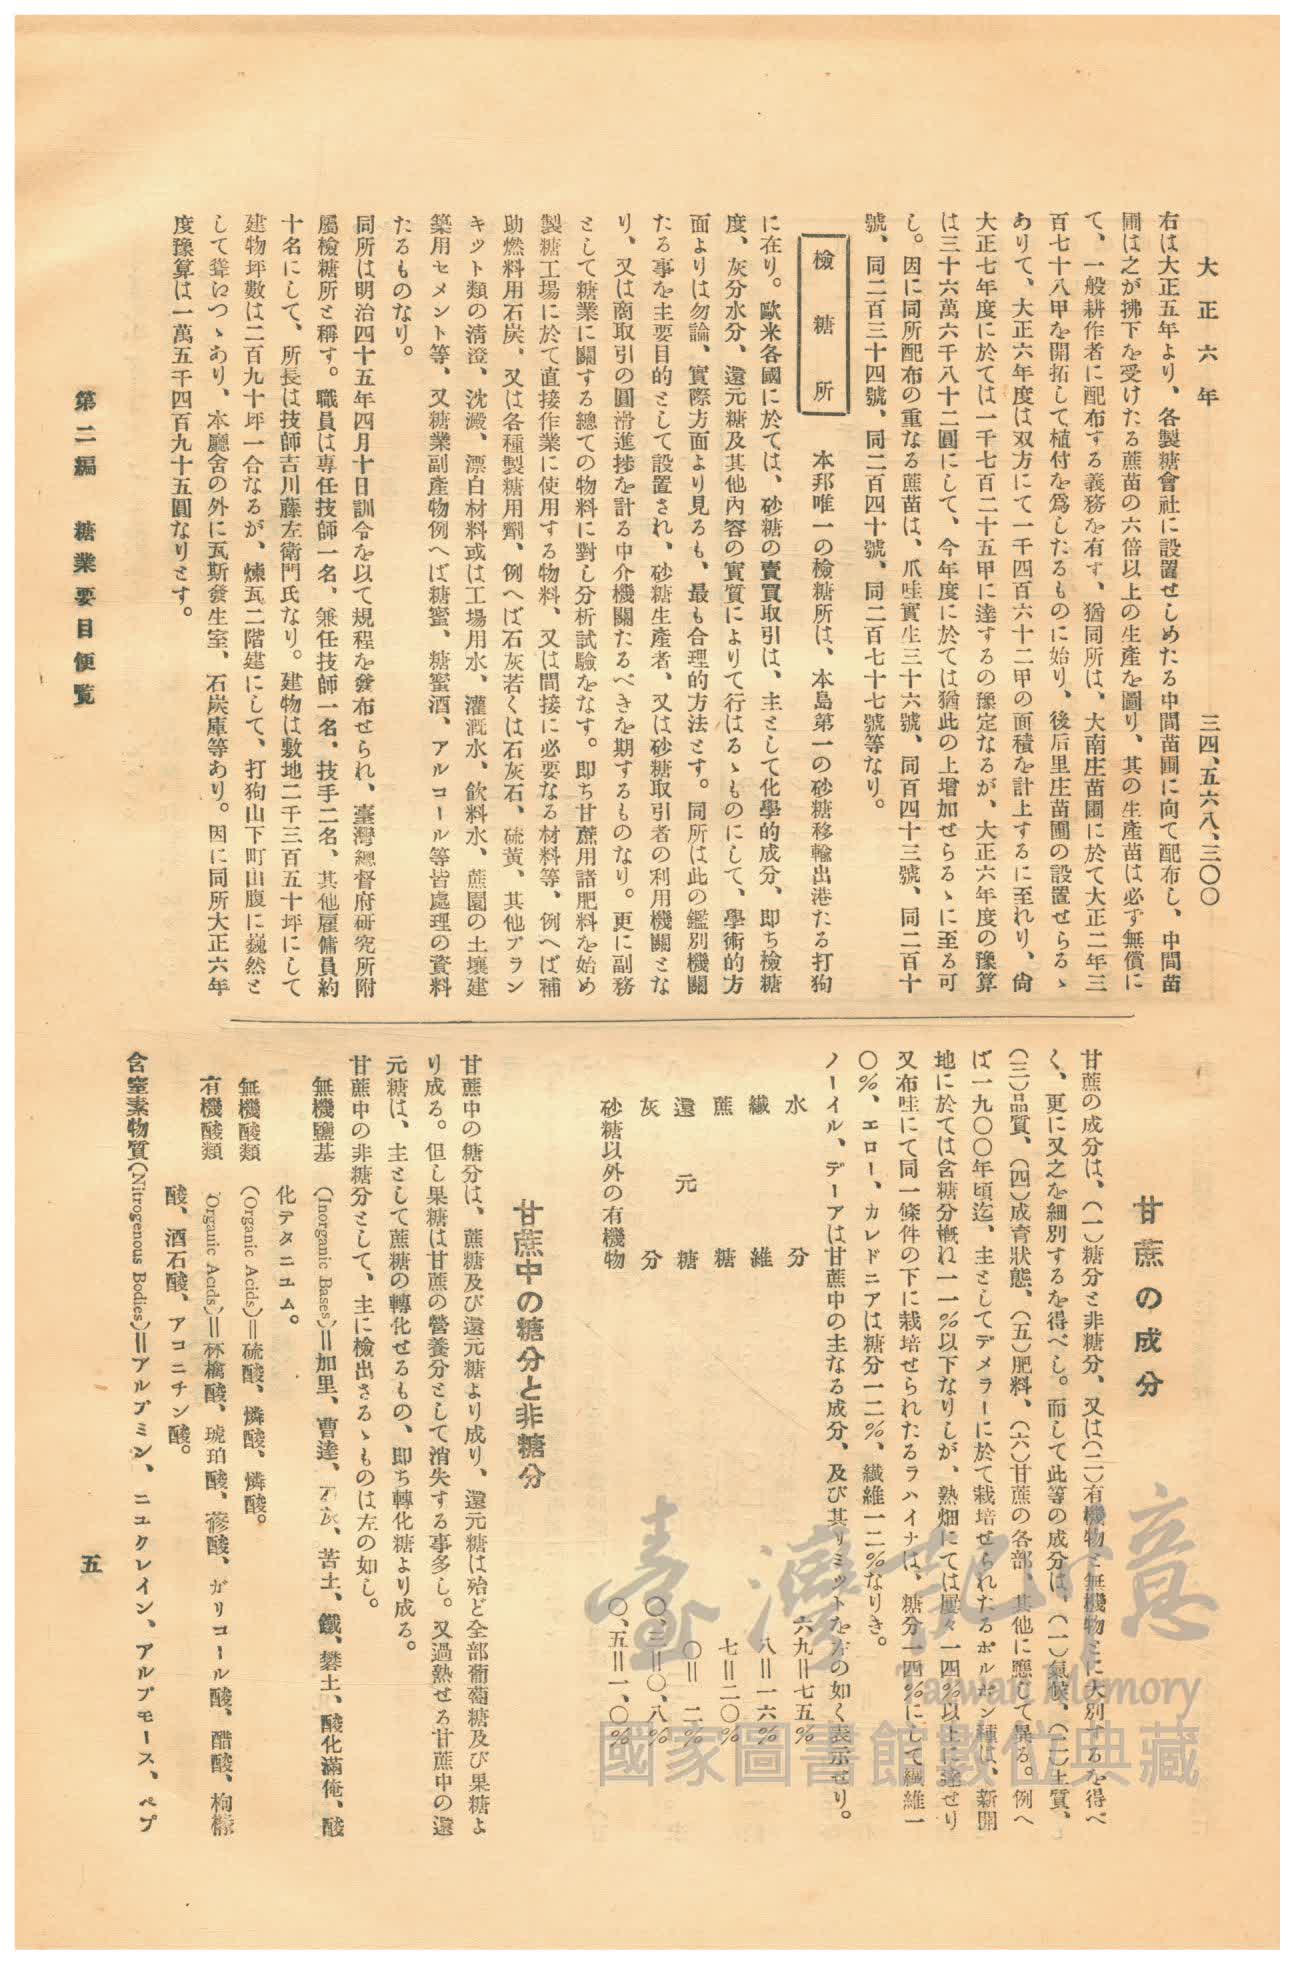 大正六年　三四、五六八、三〇〇
右は大正五年より、各製糖會社に設置せしめたる中間苗圃に向て配布し、中間苗
圃は之が拂下を受けたる蔗苗の六倍以上の生產を圖り、其の生產苗は必ず無償に
て、一般耕作者に配布する義務を有す、猶同所は、大南庄苗圃に於て大正二年三
百七十八甲を開拓して植付を爲したるものに始り、後后里庄苗圃の設置せらるゝ
ありて、大正六年度は双方にて一千四百六十二甲の面積を計上するに至れり、尙
大正七年度に於ては一千七百二十五甲に達するの豫定なるが、大正六年度の豫算
は三十六萬六千八十二圓にして、今年度に於ては猶此の上增加せらるゝに至る可
し。因に同所配布の重なる蔗苗は、爪哇實生三十六號、同百四十三號、同二百十
號、同二百三十四號、同二百四十號、同二百七十七號等なり。
檢糖所　本邦唯一の檢糖所は、本島第一の砂糖移輸出港たる打狗
に在り。歐米各國に於ては、砂糖の賣買取引は、主として化學的成分、即ち檢糖
度、灰分水分、還元糖及其他內容の實質によりて行はるゝものにして、學術的方
面よりは勿論、實際方面より見るも、最も合理的方法とす。同所は此の鑑別機關
たる事を主要目的として設置され、砂糖生產者、又は砂糖取引者の利用機關とな
り、又は商取引の圓滑進捗を計る中介機關たるべきを期するものなり。更に副務
として糖業に關する總ての物料に對し分析試驗をなす。即ち甘蔗用諸肥料を始め
製糖工場に於て直接作業に使用する物料、又は間接に必要なる材料等、例へば補
助燃料用石炭、又は各種製糖用劑、例へば石灰若くは石灰石、硫黃、其他ブラン
キット類の清澄、沈澱、漂白材料或は工場用水、灌漑水、飮料水、蔗園の土壤建
築用セメント等、又糖業副產物例へば糖蜜、糖蜜酒、アルコール等皆處理の資料
たるものなり。
同所は明治四十五年四月十日訓令を以て規程を發布せられ、臺灣總督府硏究所附
屬檢糖所と稱す。職員は專任技師一名、兼任技師一名、技手二名、其他雇傭員約
十名にして、所長は技師吉川藤左衞門氏なり。建物は敷地二千三百五十坪にして
建物坪數は二百九十坪一合なるが、煉瓦二階建にして、打狗山下町山腹に巍然と
して聳江つゝあり、本廳舍の外に瓦斯發生室、石炭庫等あり。因に同所大正六年
度豫算は一萬五千四百九十五圓なりとす。
第二編　糖業要目便覽
甘蔗の成分
甘蔗の成分は、（一）糖分と非糖分、又は（二）有機物と無機物とに大別するを得べ
く、更に又之を細別するを得べし。而して此等の成分は、（一）氣候、（二）土質、
（三）品質、（四）成育狀態、（五）肥料、（六）甘蔗の各部、其他に應じて異る。例へ
ば一九〇〇年頃迄、主としてデメラーに於て栽培せられたるボルボン種は、新開
地に於ては含糖分槪ね一一％以下なりしが、熟畑にては屢々一四％以上に達せり
又布哇にて同一條件の下に栽培せられたるラハイナは、糖分一四％にして纖維一
〇％、エロー、カレドニアは糖分一二％、纖維一二％なりき。
ノーイル、デーアは甘蔗中の主なる成分、及び其リミットを左の如く表示せり。
水分　六九＝七五％
纖維　八＝一六％
蔗糖　七＝二〇％
還元糖　〇＝二％
灰分　〇、三＝〇、八％
砂糖以外の有機物　〇、五＝一、〇％
甘蔗中の糖分と非糖分
甘蔗中の糖分は、蔗糖及び還元糖より成り、還元糖は殆ど全部葡萄糖及び果糖よ
り成る。但し果糖は甘蔗の營養分として消失する事多し。又過熟せる甘蔗中の還
元糖は、主として蔗糖の轉化せるもの、即ち轉化糖より成る。
甘蔗中の非糖分として、主に檢出さるゝものは左の如し。
無機鹽基（Inorganic Bases）＝加里、曹達、石灰、苦土、鐵、礬土、酸化滿俺、酸
化テタニユム。
無機酸類（Organic Acids）＝硫酸、燐酸、燐酸。
有機酸類（Organic Acids）＝林檎酸、琥珀酸、蓚酸、ガリコール酸、醋酸、枸櫞
酸、酒石酸、アコニチン酸。
含窒素物質（Nitrogenous Bodies）＝アルブミン、ニユクレイン、アルブモース、ペプ
五
臺灣記憶
Taiwan Memory
國家圖書館數位典藏